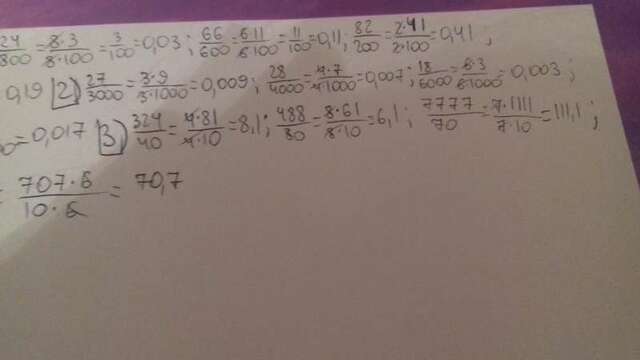 24/800 = 8·3/8·100 = 3/100 = 0,03; 66/600 = 6·11/6·100 = 11/100 = 0,11; 82/200 = 2·41/2·100 = 0,41;
0,19 2) 27/3000 = 3·9/3·1000 = 0,009; 28/4000 = 4·7/4·1000 = 0,007; 18/6000 = 6·3/6·1000 = 0,003;
= 0,017 3) 324/40 = 4·81/4·10 = 8,1; 488/80 = 8·61/8·10 = 6,1; 7777/70 = 7·1111/7·10 = 111,1;
= 707·5/10·5 = 70,7